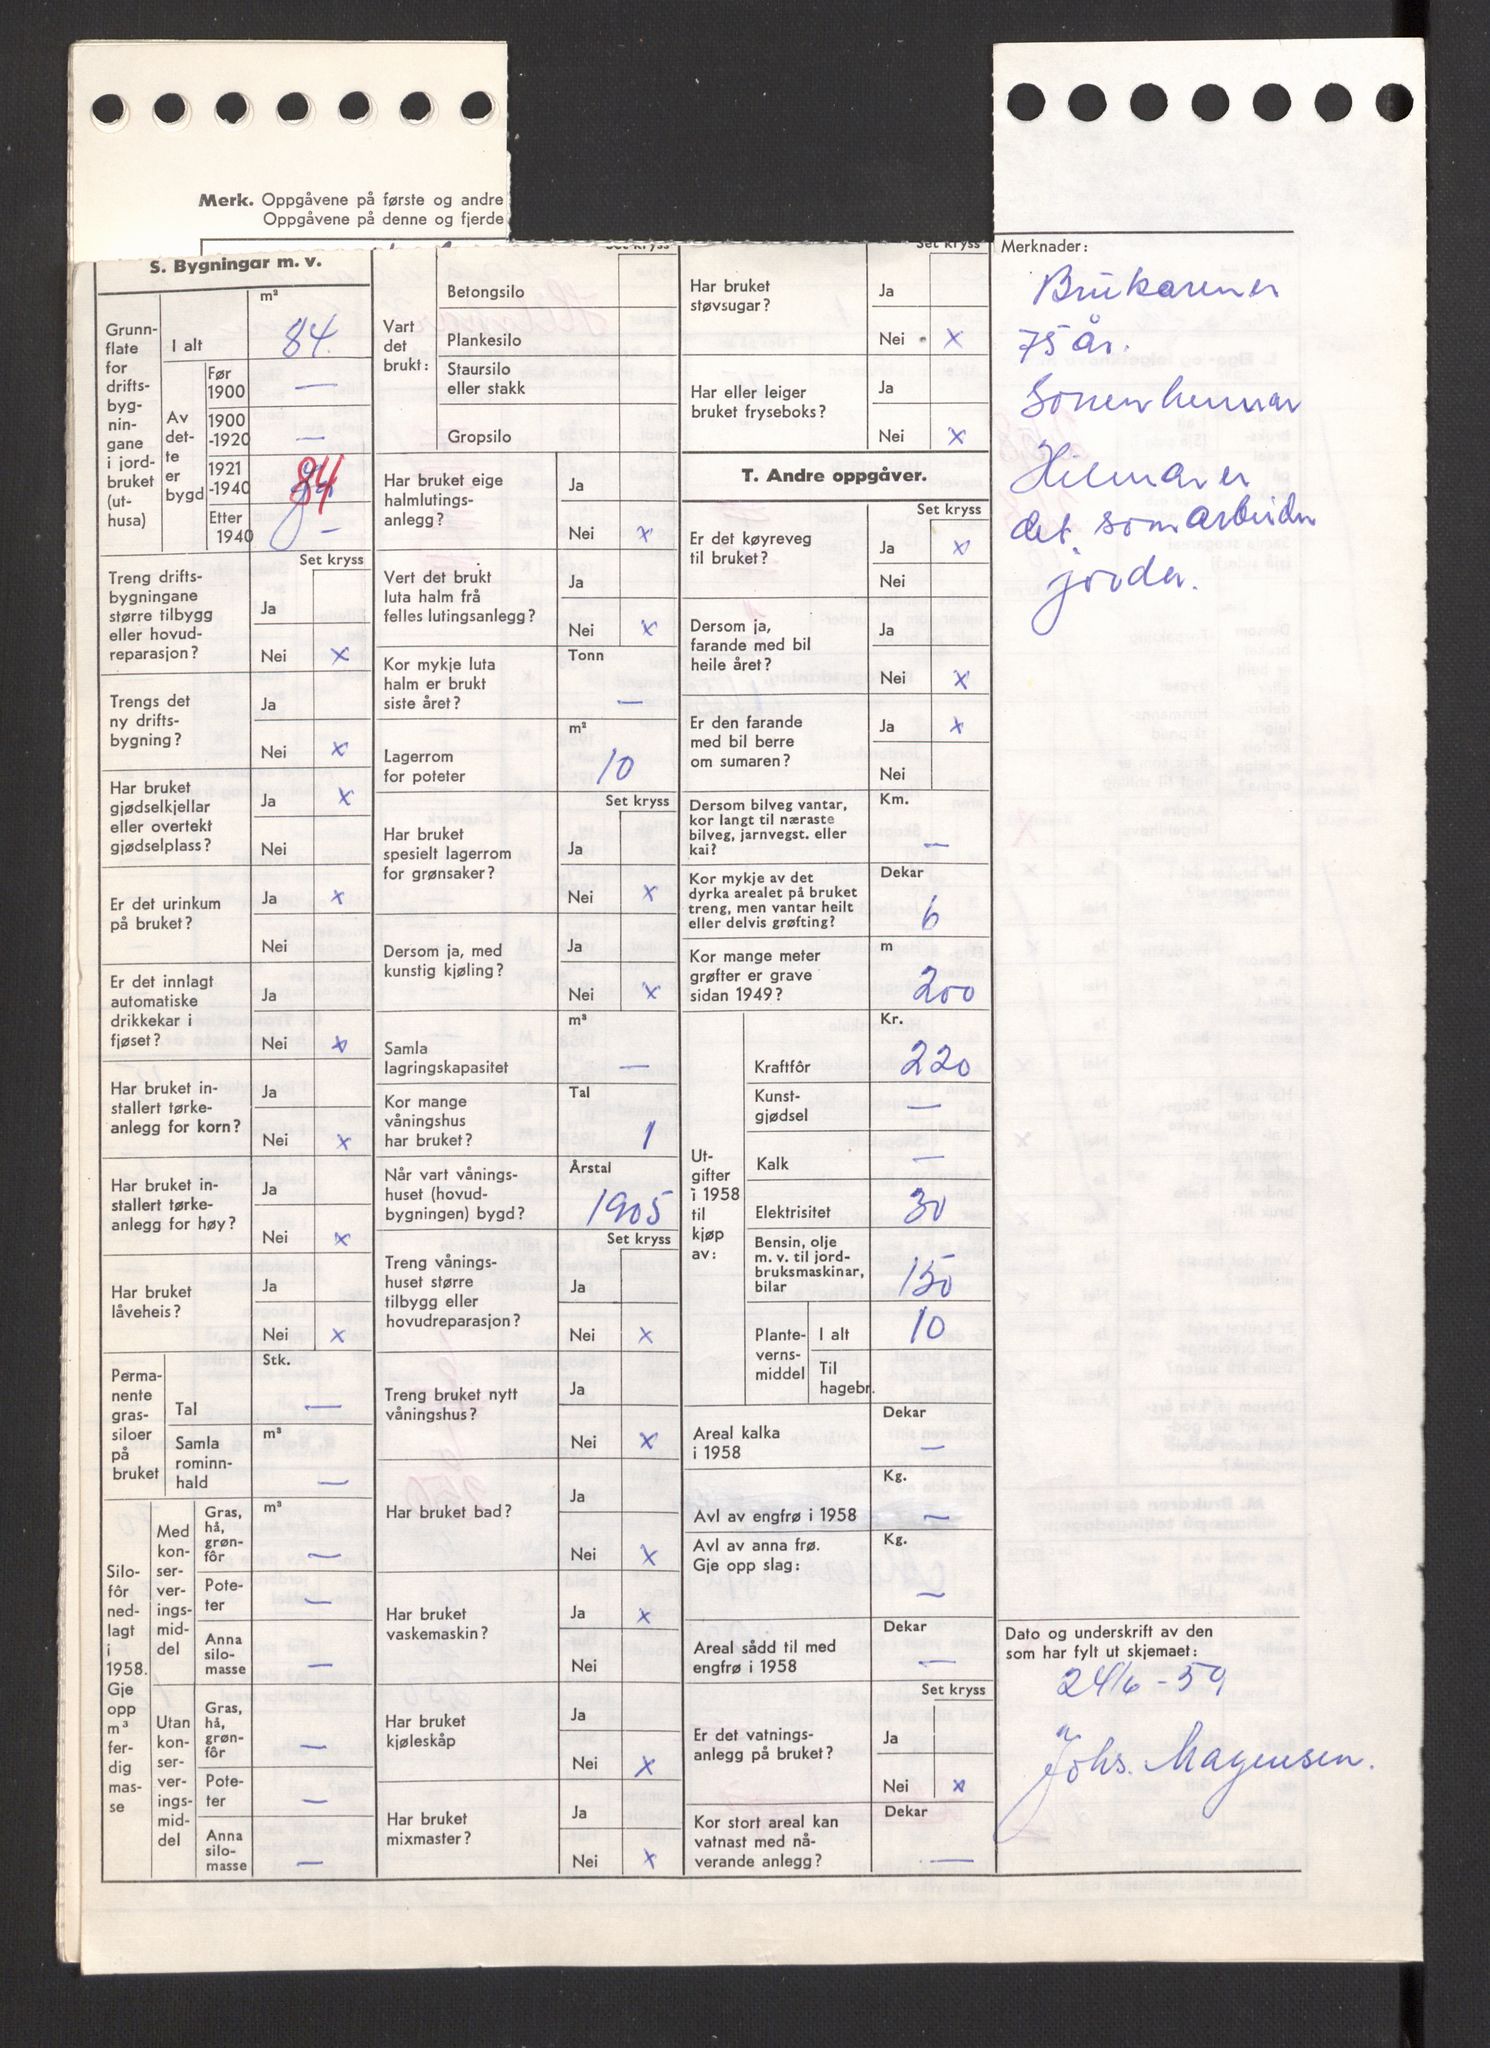 Merk. Oppgåvene på første og andre
Oppgåvene på denne og fjerde
S. Bygningar m. v.
m²
Grunnflate for driftsbygningane i jordbruket (uthusa)
I alt 84.
Av dette er bygd
Før 1900 —
1900-1920 —
1921-1940 84
Etter 1940 —
Set kryss
Treng driftsbygningane større tilbygg eller hovudreparasjon?
Ja
Nei x
Trengs det ny driftsbygning?
Ja
Nei x
Har bruket gjødselkjellar eller overtekt gjødselplass?
Ja x
Nei
Er det urinkum på bruket?
Ja x
Nei
Er det innlagt automatiske drikkekar i fjøset?
Ja
Nei x
Har bruket installert tørkeanlegg for korn?
Ja
Nei x
Har bruket installert tørkeanlegg for høy?
Ja
Nei x
Har bruket låveheis?
Ja
Nei x
Permanente grassiloer på bruket
Stk.
Tal —
Samla rominnhald
m³
—
Silofôr nedlagt i 1958. Gje opp m³ ferdig masse
Med konserveringsmiddel
m³
Gras, hå, grønfôr —
Poteter —
Anna silomasse —
Utan konserveringsmiddel
Gras, hå, grønfôr —
Poteter —
Anna silomasse —
Set kryss
Vart det brukt:
Betongsilo
Plankesilo
Staursilo eller stakk
Gropsilo
Har bruket eige halmlutingsanlegg?
Ja
Nei x
Vert det brukt luta halm frå felles lutingsanlegg?
Ja
Nei x
Kor mykje luta halm er brukt siste året?
Tonn
—
Lagerrom for poteter
m²
10
Set kryss
Har bruket spesielt lagerrom for grønsaker?
Ja
Nei x
Dersom ja, med kunstig kjøling?
Ja
Nei x
Samla lagringskapasitet
m³
—
Kor mange våningshus har bruket?
Tal
1
Når vart våningshuset (hovudbygningen) bygd?
Årstal
1905
Set kryss
Treng våningshuset større tilbygg eller hovudreparasjon?
Ja
Nei x
Treng bruket nytt våningshus?
Ja
Nei x
Har bruket bad?
Ja
Nei x
Har bruket vaskemaskin?
Ja x
Nei
Har bruket kjøleskåp
Ja
Nei x
Har bruket mixmaster?
Ja
Nei x
Set kryss
Har bruket støvsugar?
Ja
Nei x
Har eller leiger bruket fryseboks?
Ja
Nei x
T. Andre oppgåver.
Set kryss
Er det køyreveg til bruket?
Ja x
Nei
Dersom ja, farande med bil heile året?
Ja
Nei x
Er den farande med bil berre om sumaren?
Ja x
Nei
Dersom bilveg vantar, kor langt til næraste bilveg, jarnvegst. eller kai?
Km.
—
Kor mykje av det dyrka arealet på bruket treng, men vantar heilt eller delvis grøfting?
Dekar
6
Kor mange meter grøfter er grave sidan 1949?
m
200
Utgifter i 1958 til kjøp av:
Kr.
Kraftfôr 220
Kunstgjødsel —
Kalk —
Elektrisitet 30
Bensin, olje m. v. til jordbruksmaskinar, bilar 150
Plantevernsmiddel
I alt 10
Til hagebr.
Areal kalka i 1958
Dekar
—
Avl av engfrø i 1958
Kg.
—
Avl av anna frø. Gje opp slag:
Kg.
—
Areal sådd til med engfrø i 1958
Dekar
—
Set kryss
Er det vatningsanlegg på bruket?
Ja
Nei x
Kor stort areal kan vatnast med nåverande anlegg?
Dekar
—
Merknader:
Brukaren er
75 år.
Sonen hennar
Hilmar er
det som arbeider
jorder.
Dato og underskrift av den
som har fylt ut skjemaet:
24/6-59
Johs. Magensen.